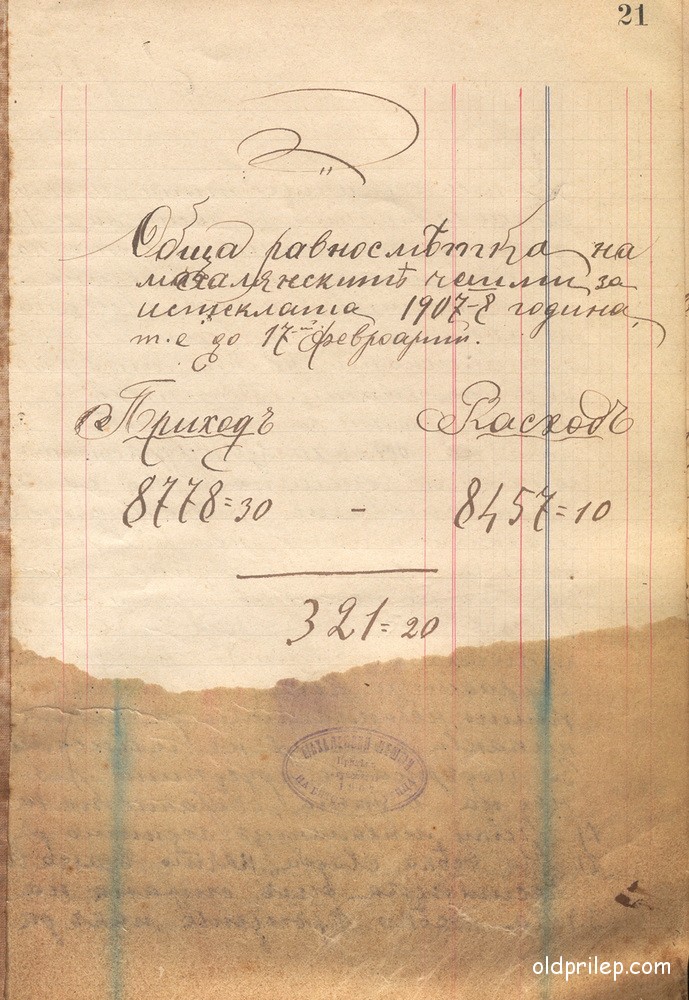 21
Обща равносмѣтка на
махалянскитѣ чешми за
истеклата 1907-8 година,
т. е до 17-ий февруарий.
Приходъ Расходъ
8778=30 - 8457=10
321=20
oldprilep.com